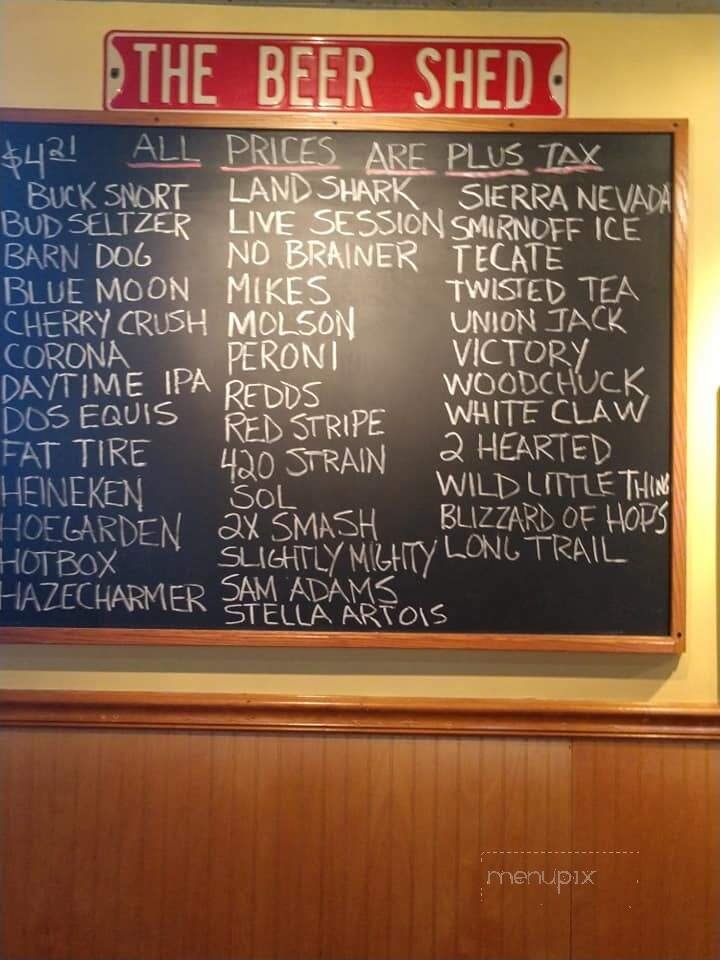 THE BEER SHED
$4.21 ALL PRICES ARE PLUS TAX
BUCK SNORT
BUD SELTZER
BARN DOG
BLUE MOON
CHERRY CRUSH
CORONA
DAYTIME IPA
DOS EQUIS
FAT TIRE
HEINEKEN
HOEGARDEN
HOTBOX
HAZECHARMER
LAND SHARK
LIVE SESSION
NO BRAINER
MIKES
MOLSON
PERONI
REDDS
RED STRIPE
420 STRAIN
SOL
2X SMASH
SLIGHTLY MIGHTY
SAM ADAMS
STELLA ARTOIS
SIERRA NEVADA
SMIRNOFF ICE
TECATE
TWISTED TEA
UNION JACK
VICTORY
WOODCHUCK
WHITE CLAW
2 HEARTED
WILD LITTLE THING
BLIZZARD OF HOPS
LONG TRAIL
menupix